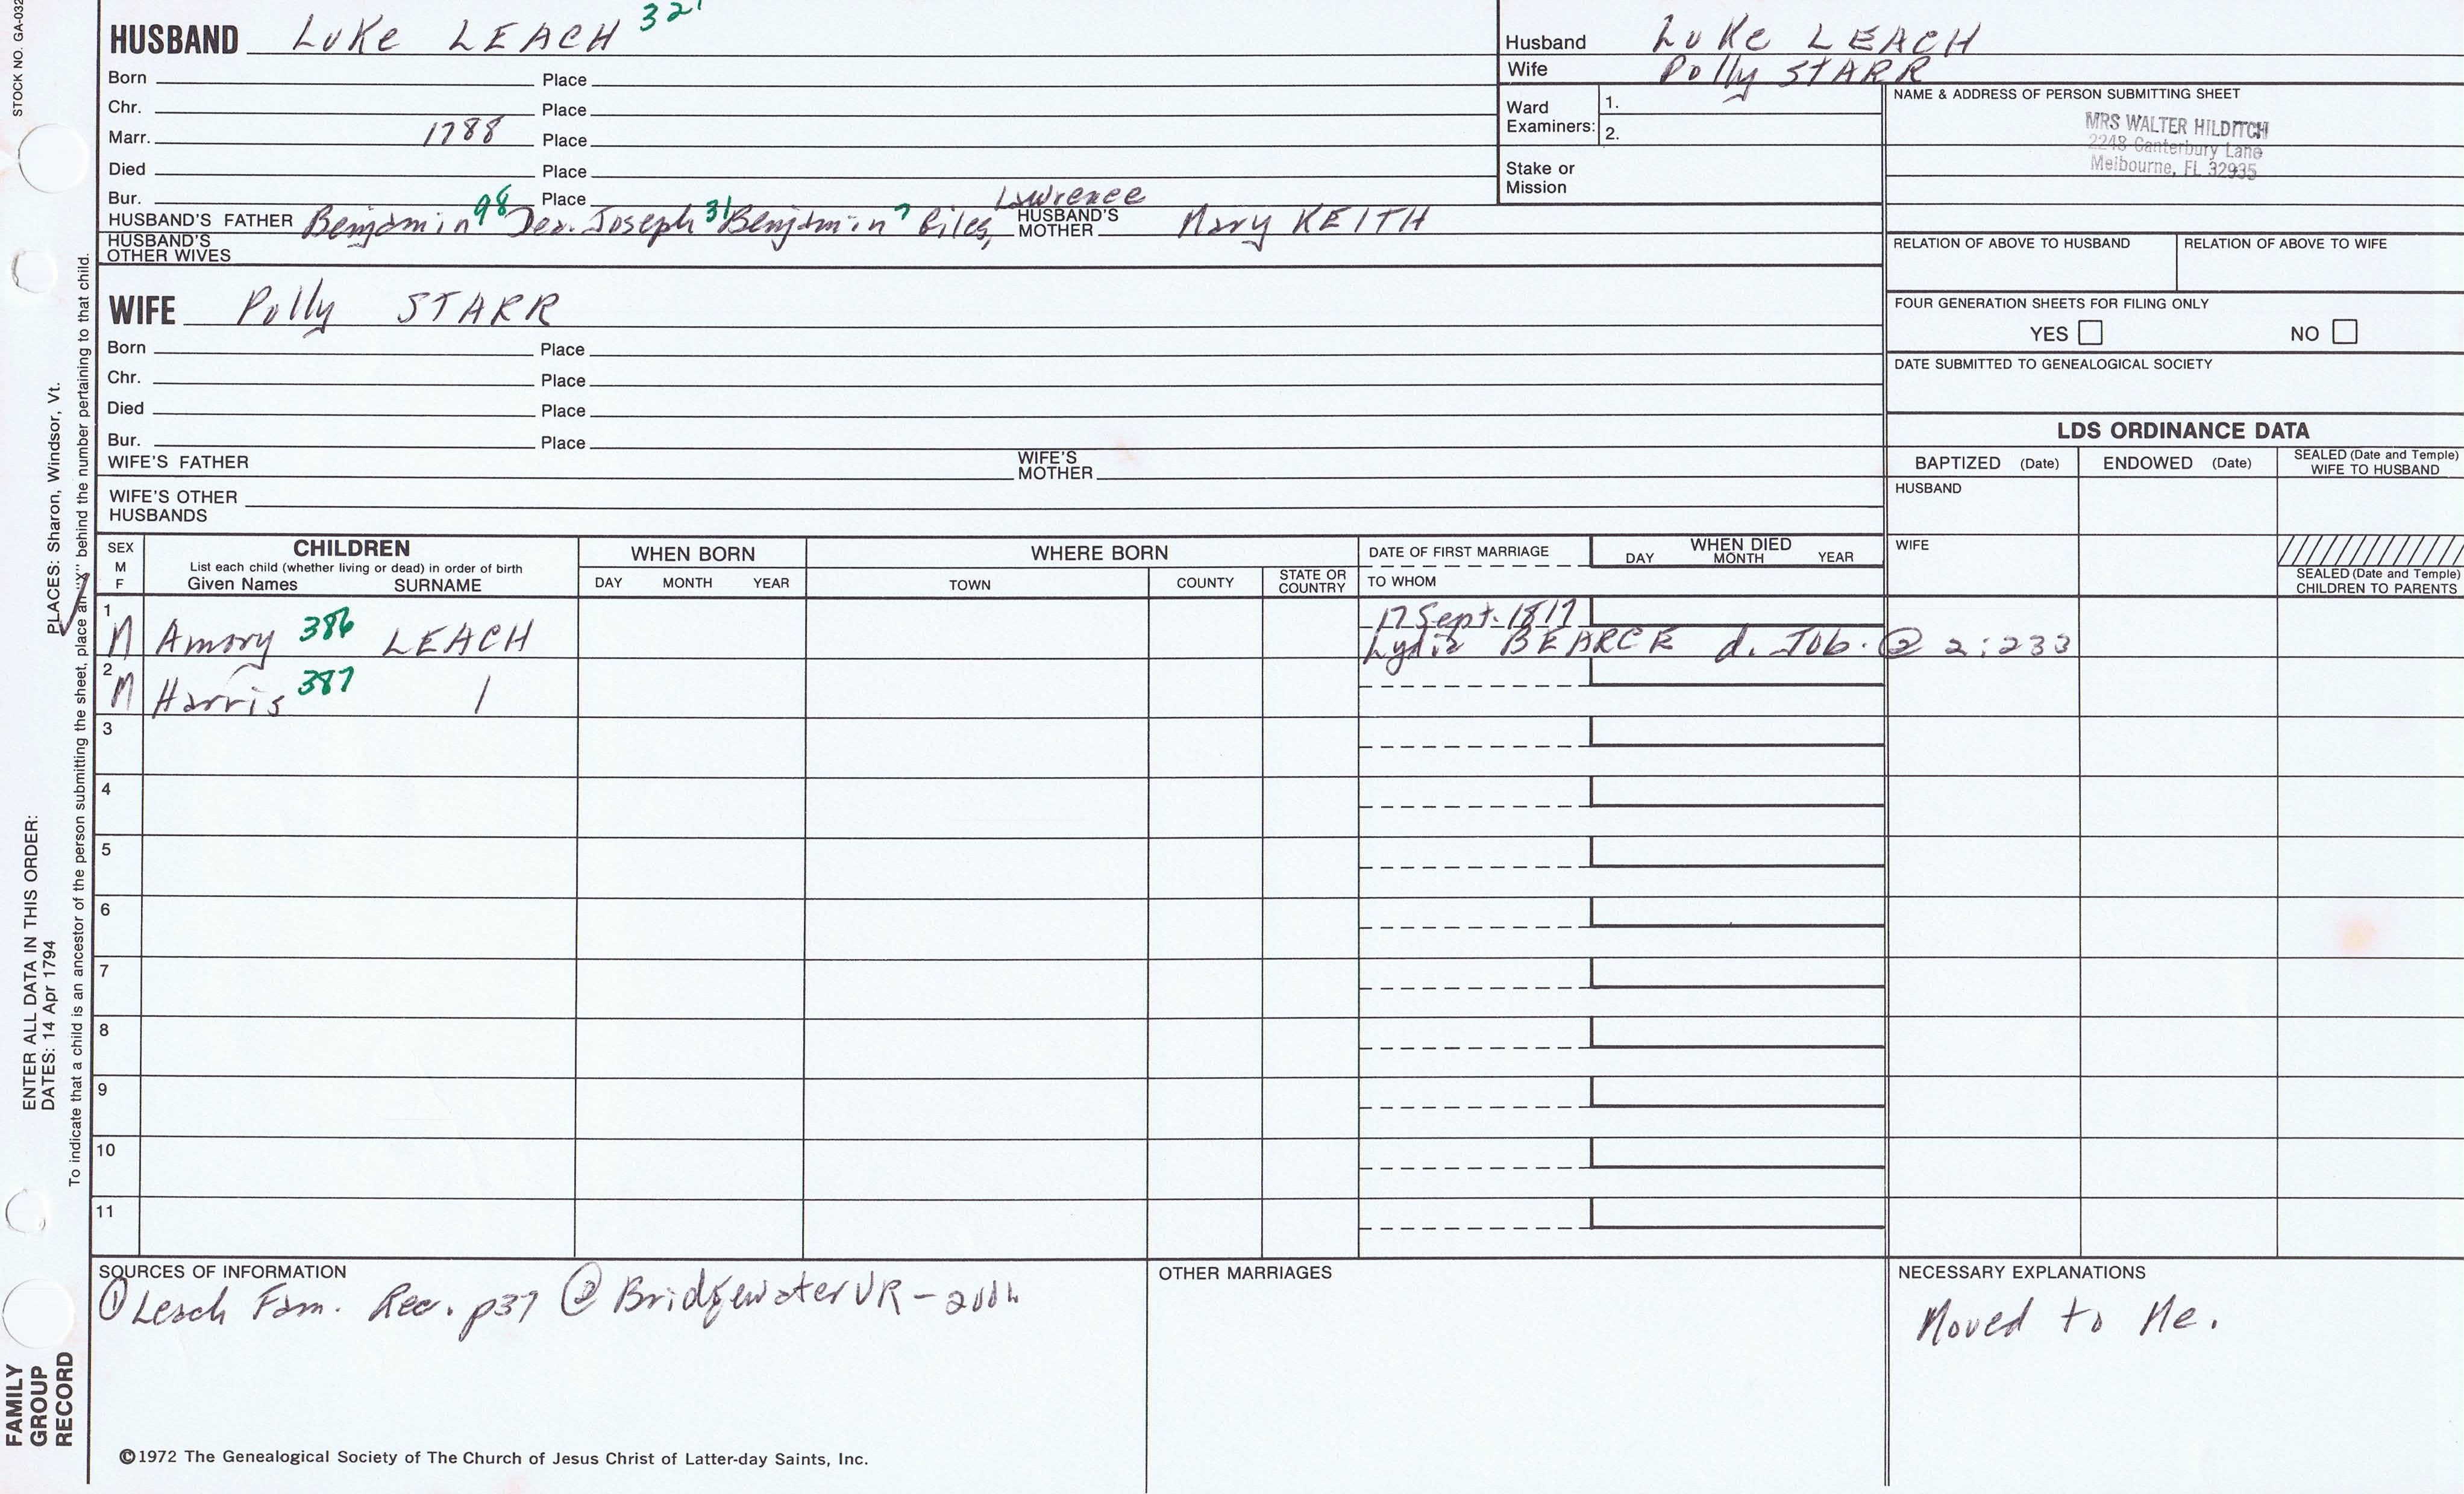 STOCK NO. GA-032
HUSBAND Luke LEACH 321
Born Place
Chr. Place
Marr. 1788 Place
Died Place
Bur. Place
HUSBAND'S FATHER Benjamin 98 Dea. Joseph 31 Benjamin 7 Giles, Lawrence HUSBAND'S MOTHER Mary KEITH
HUSBAND'S OTHER WIVES
WIFE Polly STARR
Born Place
Chr. Place
Died Place
Bur. Place
WIFE'S FATHER WIFE'S MOTHER
WIFE'S OTHER HUSBANDS
Husband Luke LEACH
Wife Polly STARR
Ward Examiners: 1.
2.
Stake or Mission
NAME & ADDRESS OF PERSON SUBMITTING SHEET
MRS WALTER HILDITCH
2248 Canterbury Lane
Melbourne, FL 32935
RELATION OF ABOVE TO HUSBAND RELATION OF ABOVE TO WIFE
FOUR GENERATION SHEETS FOR FILING ONLY
YES NO
DATE SUBMITTED TO GENEALOGICAL SOCIETY
LDS ORDINANCE DATA
BAPTIZED (Date) ENDOWED (Date) SEALED (Date and Temple) WIFE TO HUSBAND
HUSBAND
WIFE
SEALED (Date and Temple) CHILDREN TO PARENTS
SEX M F
CHILDREN
List each child (whether living or dead) in order of birth
Given Names SURNAME
WHEN BORN
DAY MONTH YEAR
WHERE BORN
TOWN COUNTY STATE OR COUNTRY
DATE OF FIRST MARRIAGE
TO WHOM
WHEN DIED
DAY MONTH YEAR
1 M Amory 386 LEACH 17 Sept. 1817
Lydia BEARCE d. Job. @ 2:233
2 M Harris 387 |
3
4
5
6
7
8
9
10
11
SOURCES OF INFORMATION
① Leach Fam. Rec. p37 @ Bridgewater VR -
OTHER MARRIAGES
NECESSARY EXPLANATIONS
Moved to Me.
©1972 The Genealogical Society of The Church of Jesus Christ of Latter-day Saints, Inc.
FAMILY GROUP RECORD
ENTER ALL DATA IN THIS ORDER:
DATES: 14 Apr 1794
PLACES: Sharon, Windsor, Vt.
To indicate that a child is an ancestor of the person submitting the sheet, place an "X" behind the number pertaining to that child.